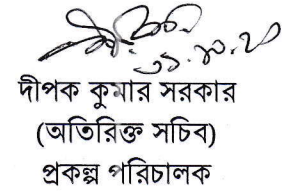 ৩১.১০.২০
দীপক কুমার সরকার
(অতিরিক্ত সচিব)
প্রকল্প পরিচালক